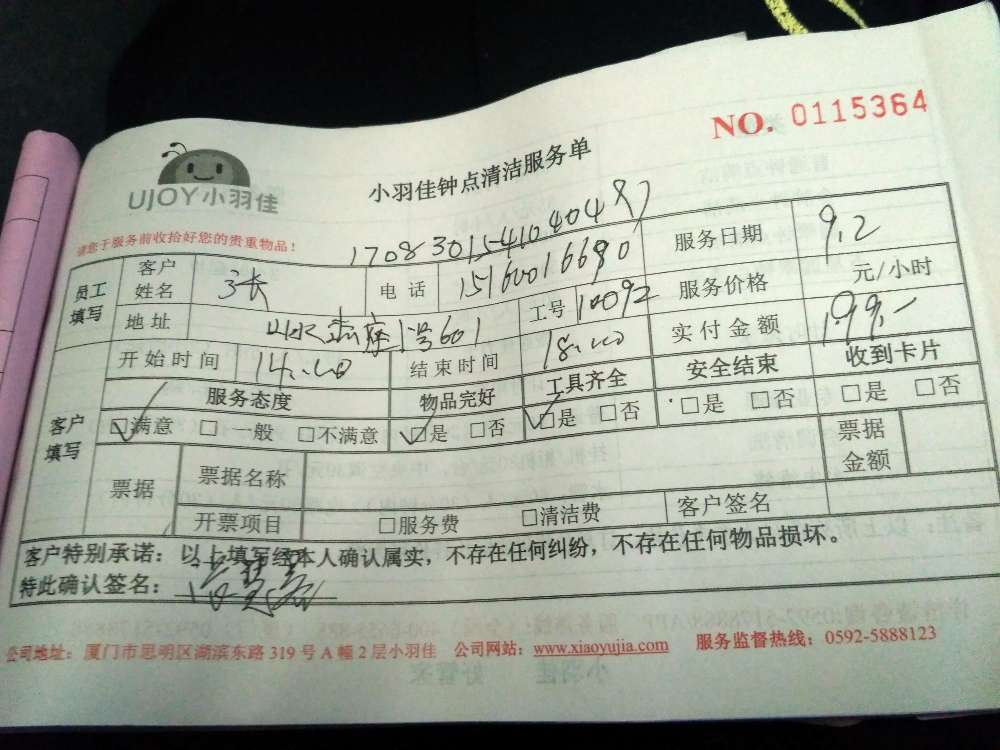 NO. 0115364
UJOY小羽佳
小羽佳钟点清洁服务单
请您于服务前收拾好您的贵重物品！
17083015410404
员工填写 客户姓名 电话 15160016690 服务日期 9.2
地址 601 工号 10092 服务价格 元/小时
客户填写 开始时间 14:00 结束时间 18:00 实付金额 199.-
服务态度 物品完好 工具齐全 安全结束 收到卡片
□满意 □一般 □不满意 □是 □否 □是 □否 □是 □否 □是 □否
票据 票据名称 票据金额
开票项目 □服务费 □清洁费 客户签名
客户特别承诺：以上填写经本人确认属实，不存在任何纠纷，不存在任何物品损坏。
特此确认签名：
公司地址：厦门市思明区湖滨东路319号A幢2层小羽佳 公司网站：www.xiaoyujia.com 服务监督热线：0592-5888123